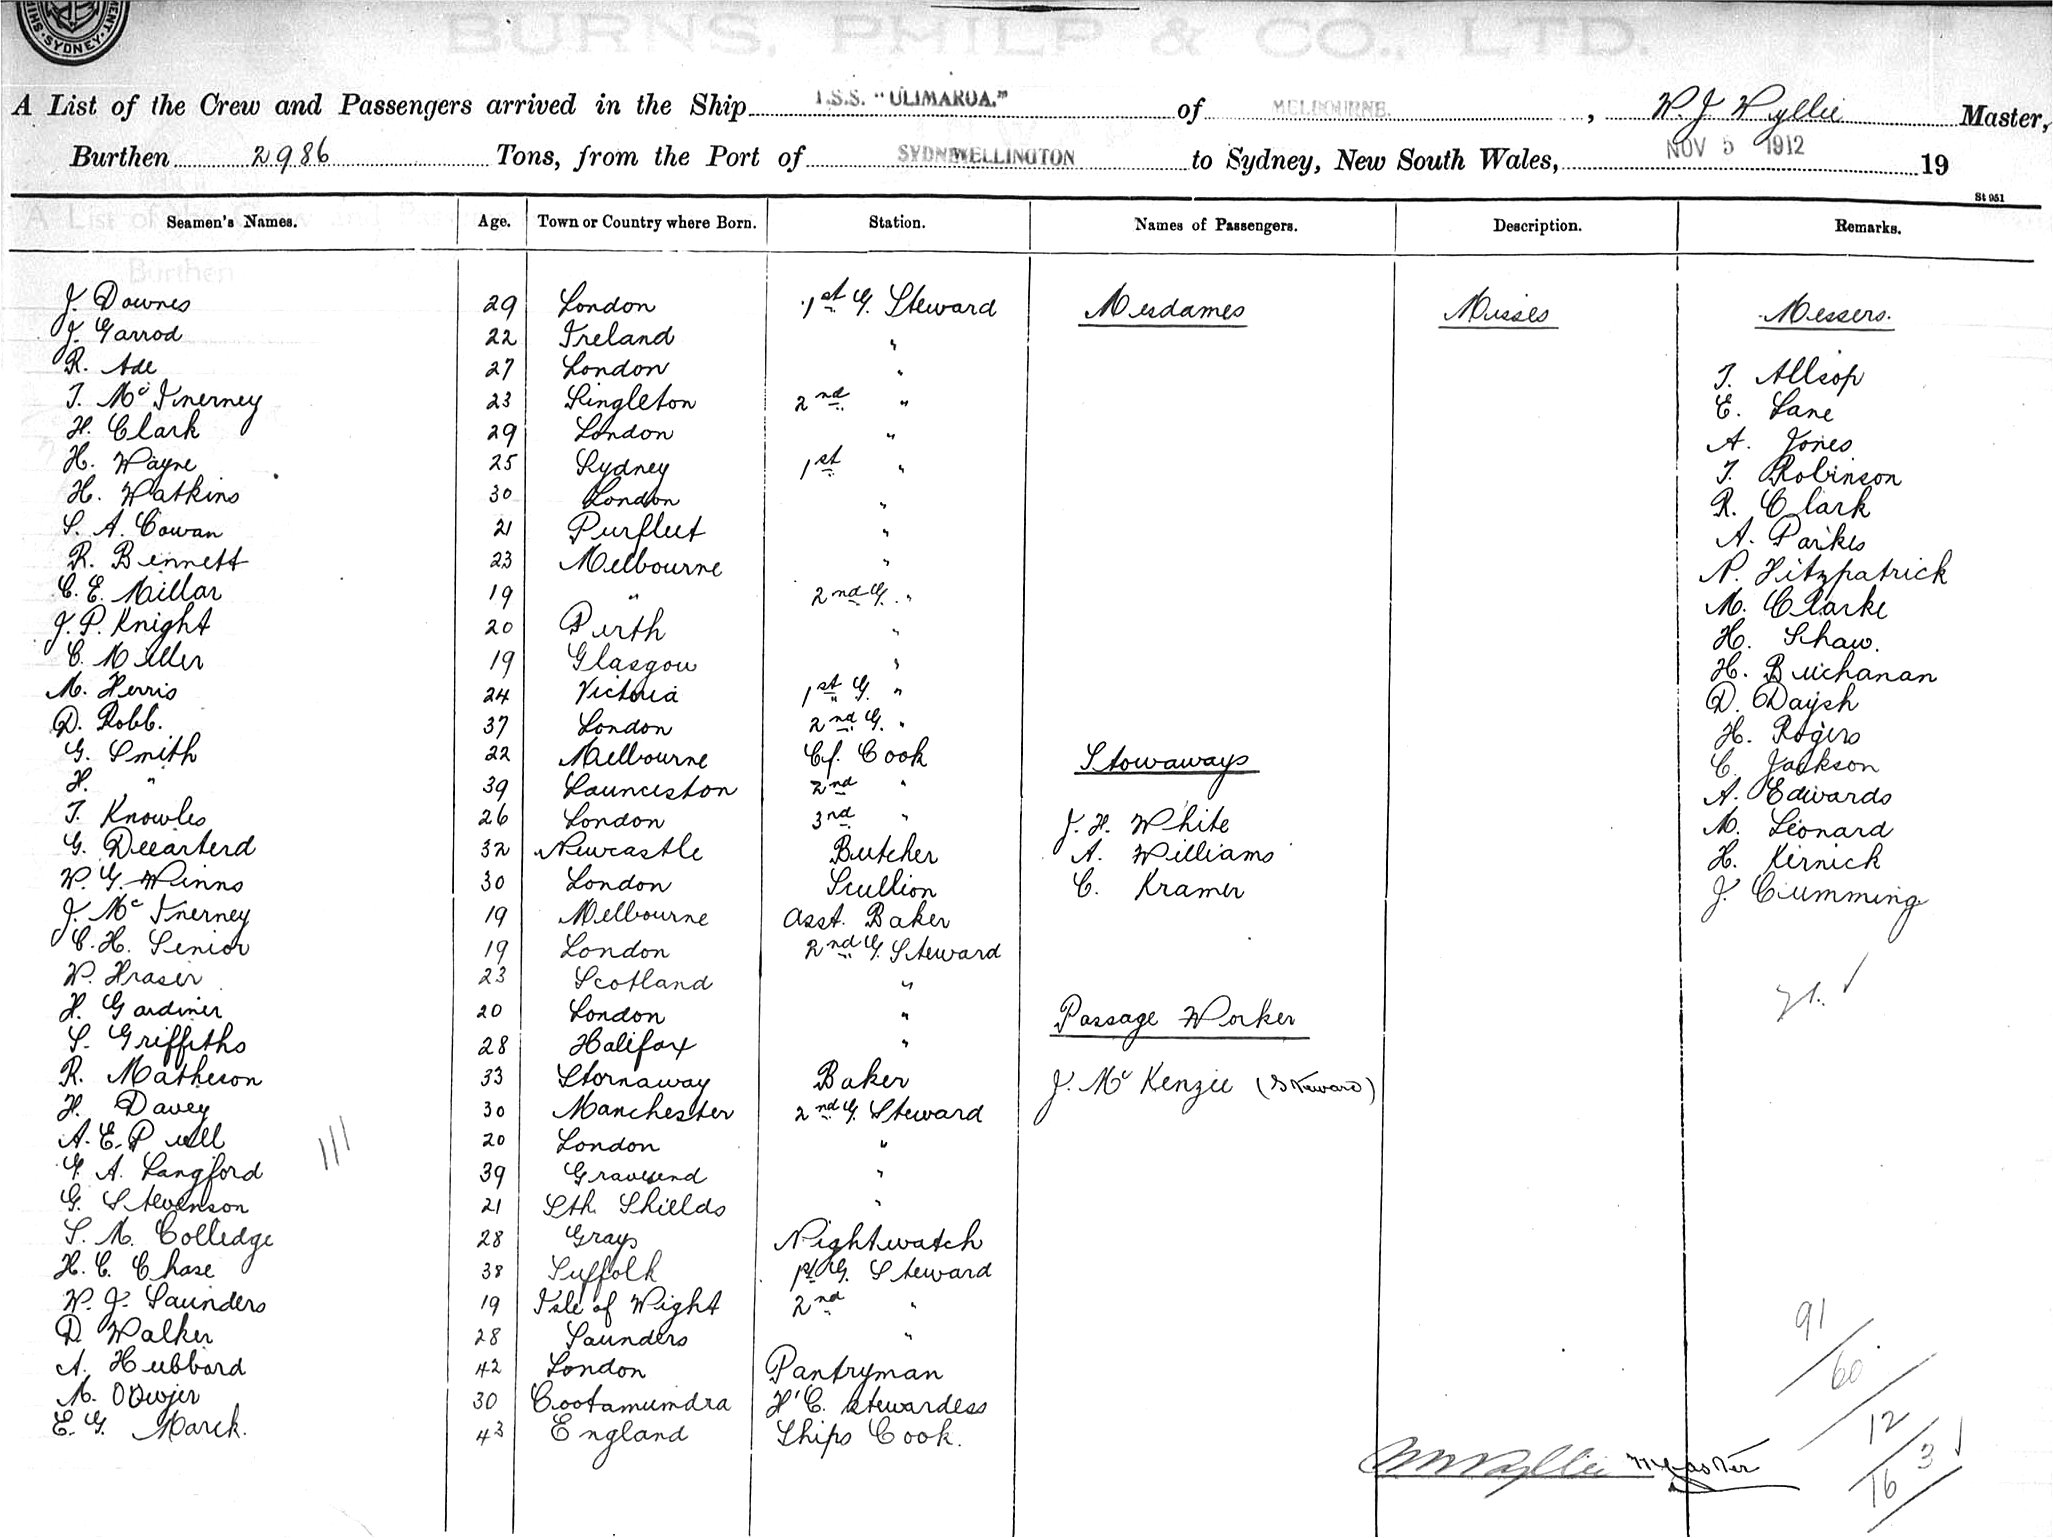 SYDNEY
BURNS, PHILP & CO., LTD.
A List of the Crew and Passengers arrived in the Ship T.S.S. "ULIMAROA." of MELBOURNE. , W. J. Wyllie Master,
Burthen 2986 Tons, from the Port of WELLINGTON to Sydney, New South Wales, NOV 5 1912 19
St 951
Seamen's Names. Age. Town or Country where Born. Station. Names of Passengers. Description. Remarks.
J. Downes 29 London 1st G. Steward Mesdames Misses Messers.
J. Garrod 22 Ireland "
R. Ade 27 London " T. Allsop
T. McInerney 23 Singleton 2nd " E. Lane
H. Clark 29 London " A. Jones
H. Wayne 25 Sydney 1st " T. Robinson
H. Watkins 30 London " R. Clark
S. A. Cowan 21 Purfleet " A. Parkes
R. Bennett 23 Melbourne " N. Fitzpatrick
C. E. Millar 19 " 2nd G. " M. Clarke
J. P. Knight 20 Perth " H. Shaw.
C. Miller 19 Glasgow " H. Buchanan
M. Herris 24 Victoria 1st G. " D. Daysh
D. Robb. 37 London 2nd G. " H. Rogers
G. Smith 22 Melbourne Cf. Cook Stowaways C. Jackson
H. " 39 Launceston 2nd " A. Edwards
T. Knowles 26 London 3rd " J. H. White M. Leonard
G. 32 Newcastle Butcher A. Williams H. Kernick
W. G. Winns 30 London Scullion C. Kramer J. Cumming
J. McInerney 19 Melbourne Asst. Baker
C. H. Senior 19 London 2nd G. Steward
W. Fraser 23 Scotland "
H. Gardiner 20 London " Passage Worker
S. Griffiths 28 Halifax "
R. Matheson 33 Stornaway Baker J. McKenzie (Steward)
H. Davey 30 Manchester 2nd G. Steward
A. E. 20 London "
G. A. Langford 39 Gravesend "
G. Stevenson 21 Sth. Shields "
S. M. Colledge 28 Grays Nightwatch
H. C. Chase 38 Suffolk 1st G. Steward
W. J. Saunders 19 Isle of Wight 2nd "
D. Walker 28 Saunders "
A. Hubbard 42 London Pantryman
M. 30 Cootamundra H'C. Stewardess
E. G. Marck. 43 England Ships Cook.
W J Wyllie Master
91
60
12
3
16